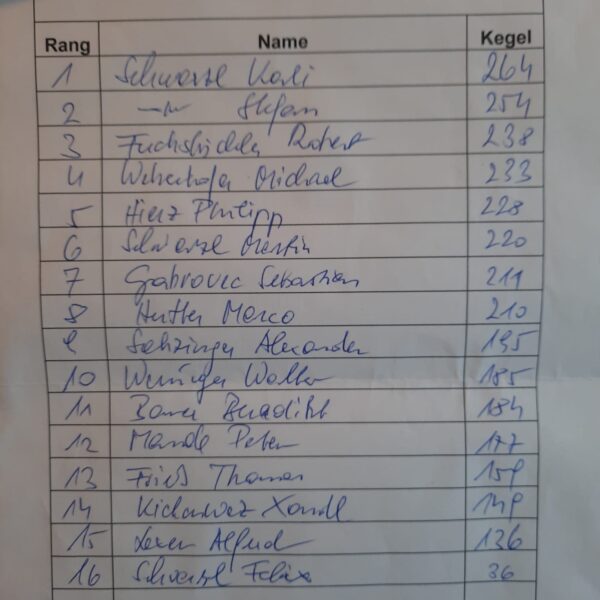 Rang Name Kegel
1 Schwarzl Karli 264
2 Stefan 254
3 Robert 238
4 Weberhofer Michael 233
5 Hierz Philipp 228
6 Schwarzl Martin 220
7 Gabrovec Sebastian 211
8 Hutter Marco 210
9 Alexander 195
10 Weninger Walter 185
11 184
12 Peter 177
13 Frieß Thomas 159
14 149
15 Alfred 136
16 Schwarzl Felix 36